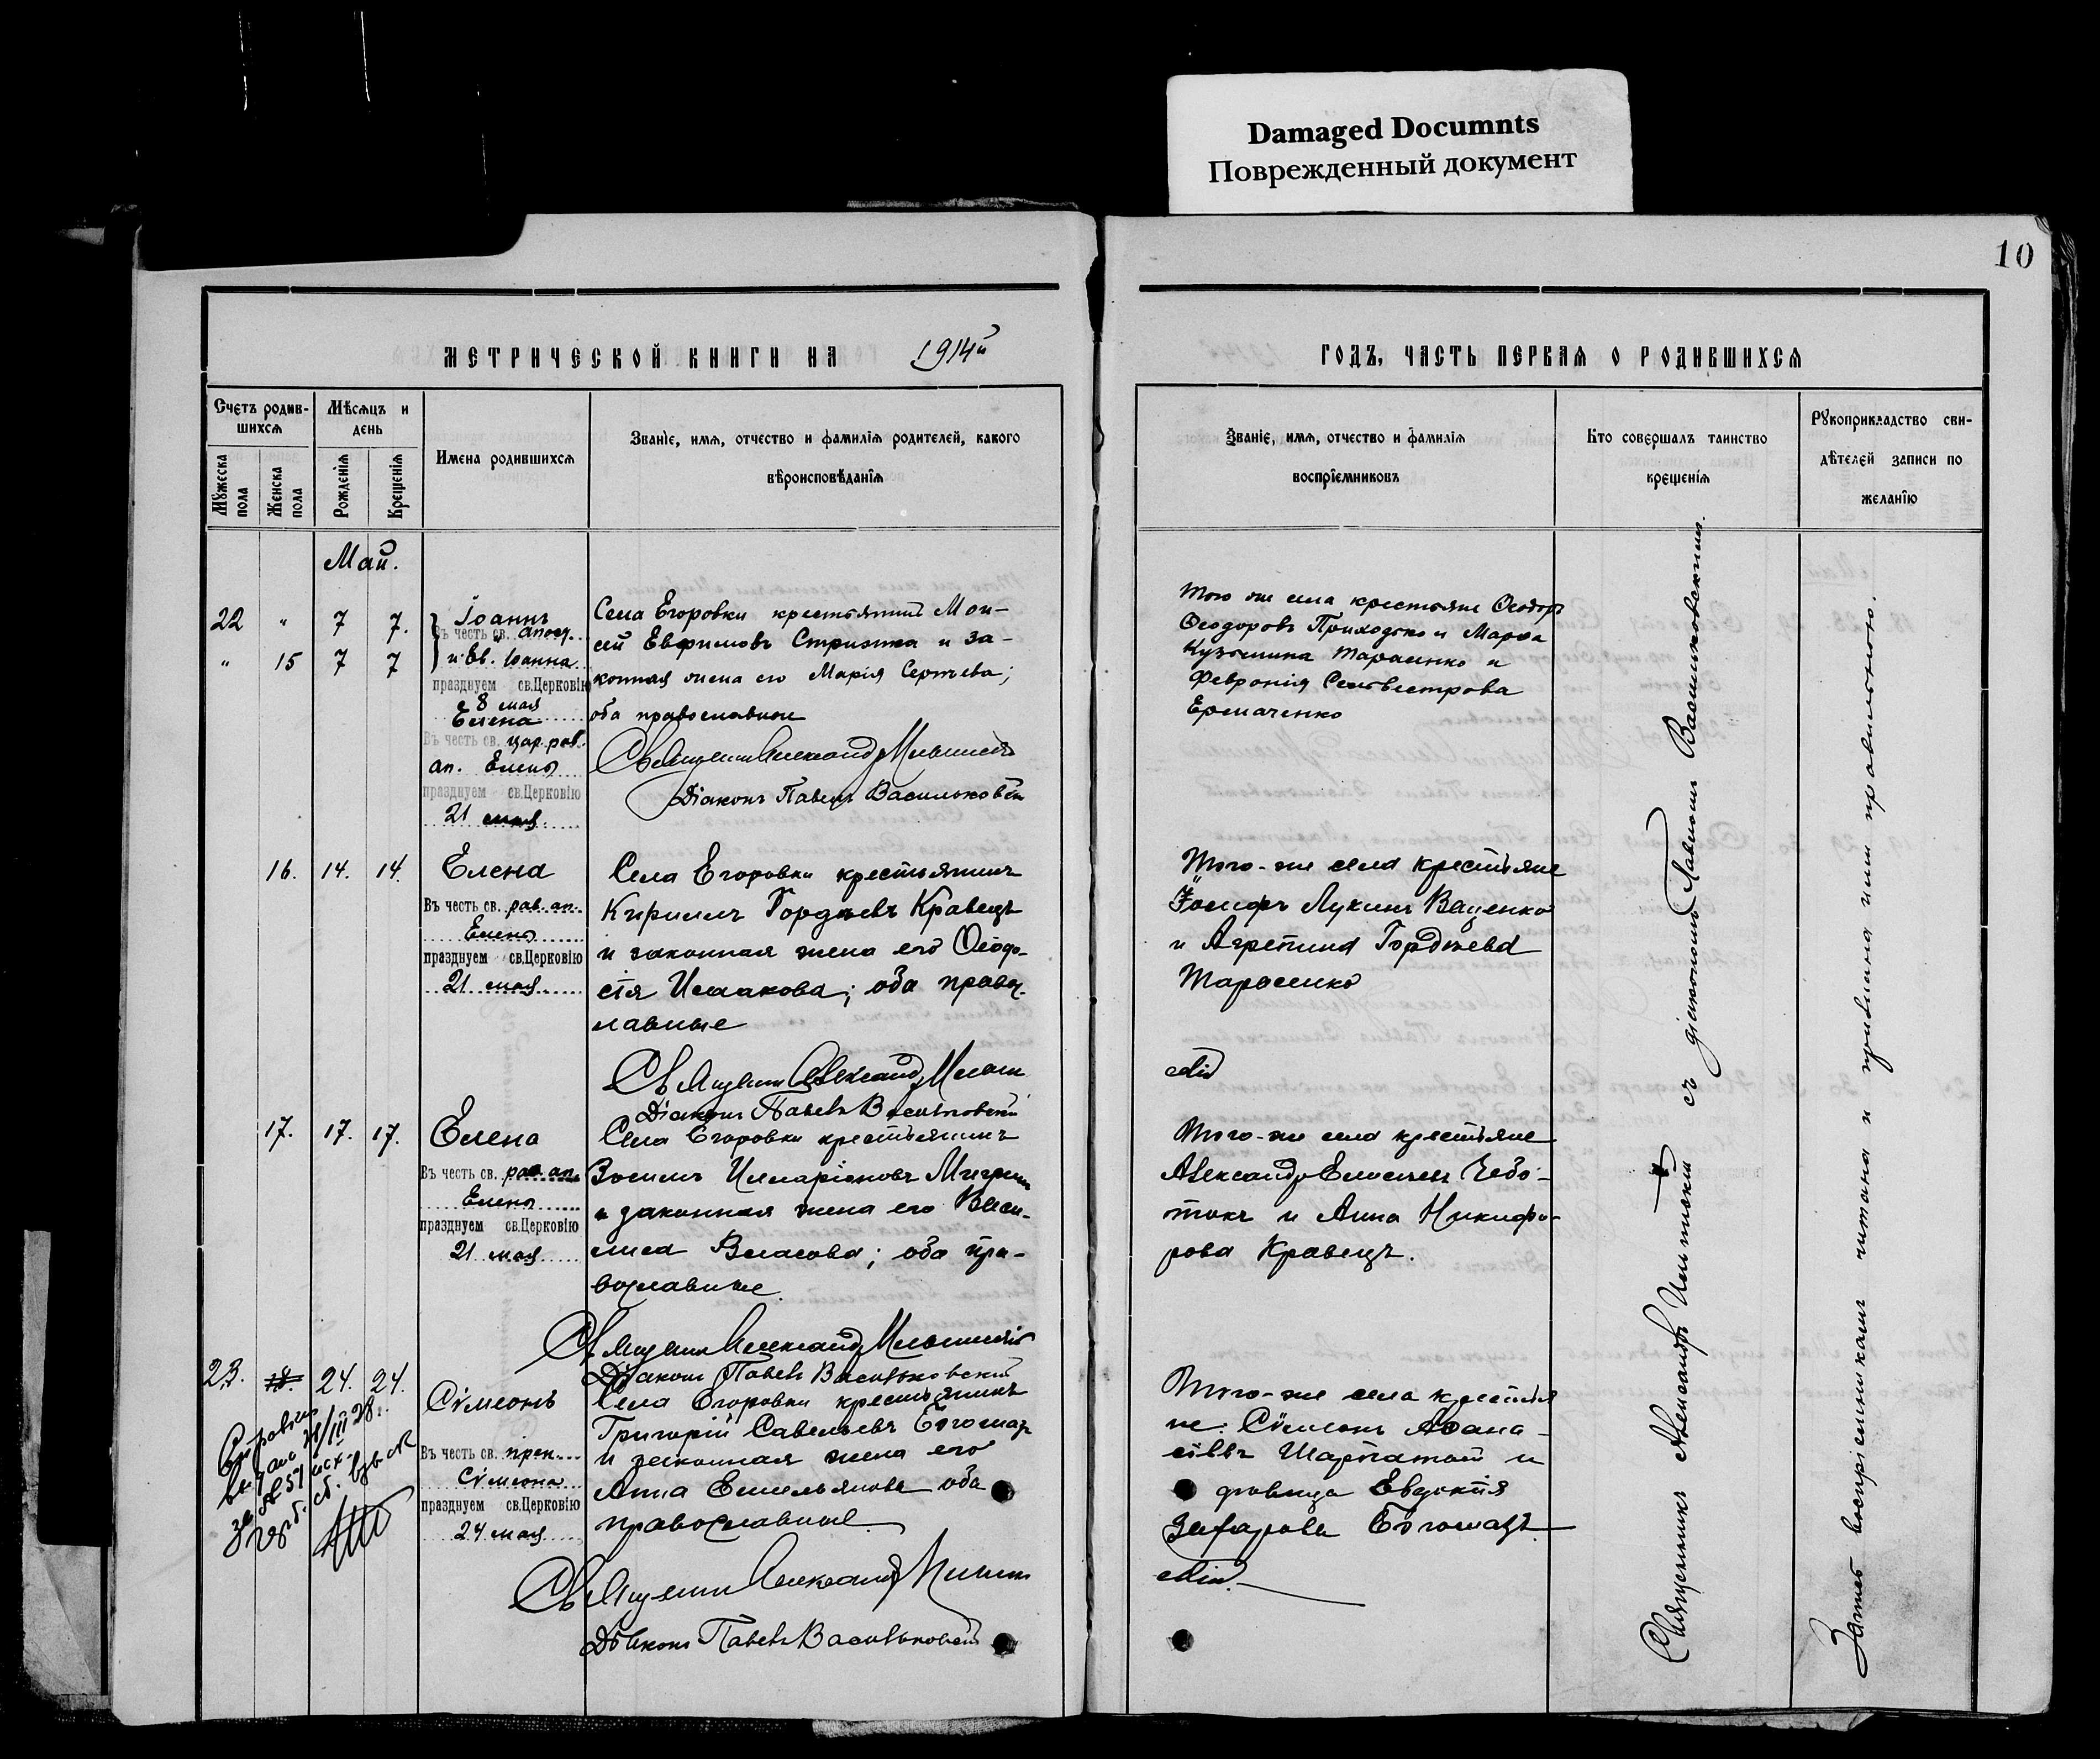 Damaged Documnts
Поврежденный документ
10
МЕТРИЧЕСКОЙ КНИГИ НА 1914й
ГОДЪ, ЧАСТЬ ПЕРВАЯ О РОДИВШИХСЯ
Счетъ родив-
шихся
Мѣсяцъ и
день
Имена родившихся
Званіе, имя, отчество и фамилія родителей, какого
вѣроисповѣданія
Мужеска
пола
Женска
пола
Рожденія
Крещенія
Званіе, имя, отчество и фамилія
воспріемниковъ
Кто совершалъ таинство
крещенія
Рукоприкладство сви-
дѣтелей записи по
желанію
Май.
22 " 7 7.
" 15 7 7
Іоаннъ
Въ честь св. апост.
и Ев. Іоанна
празднуем св.Церковію
8 мая
Елена
Въ честь св. цар. рав.
ап. Елены
празднуем св.Церковію
21 мая
Села Егоровки крестьянинъ Мои-
сей Евфимовъ и за-
конная жена его Марія Сергѣева;
оба православные
Священникъ Александръ
Діаконъ Павелъ Васильковскій
Того же села крестьяне Ѳеодоръ
Ѳеодоровъ Приходько и Марѳа
Кузьмина Тарасенко и
Февронія Сельвестрова
Ермаченко
16. 14. 14.
Елена
Въ честь св. рав. ап.
Елены
празднуем св.Церковію
21 мая
Села Егоровки крестьянинъ
Кириллъ Гордѣевъ Кравецъ
и законная жена его Ѳеодо-
сія Исаакова; оба правос-
лавные
Священникъ Александръ
Діаконъ Павелъ Васильковскій
Того-же села крестьяне
Іосифъ Лукинъ Ваценко
и Агрепина Гордѣева
Тарасенко
17. 17. 17.
Елена
Въ честь св. рав. ап.
Елены
празднуем св.Церковію
21 мая
Села Егоровки крестьянинъ
Иларіоновъ
и законная жена его Васи-
лиса Власова; оба пра-
вославные.
Священникъ Александръ
Діаконъ Павелъ Васильковскій
Того-же села крестьяне
Александръ Чебо-
такъ и Анна Никифо-
рова Кравецъ.
23. 18. 24. 24.
Сѵмеонъ
Въ честь св. преп.
Сѵмеона
празднуем св.Церковію
24 мая
Села Егоровки крестьянинъ
Григорій Савельевъ Богомазъ
и законная жена его
Анна Емельянова оба
православные.
Священникъ Александръ
Діаконъ Павелъ Васильковскій
Того-же села крестья
не: Сѵмеонъ Аѳана-
сіевъ и
дѣвица Евдокія
Захарова Богомазъ.
Справка
выдана 28/III 28
за № 57
Священникъ Александръ съ діакономъ Павломъ Васильковскимъ.
Запись воспріемникамъ читана и признана ими правильною.